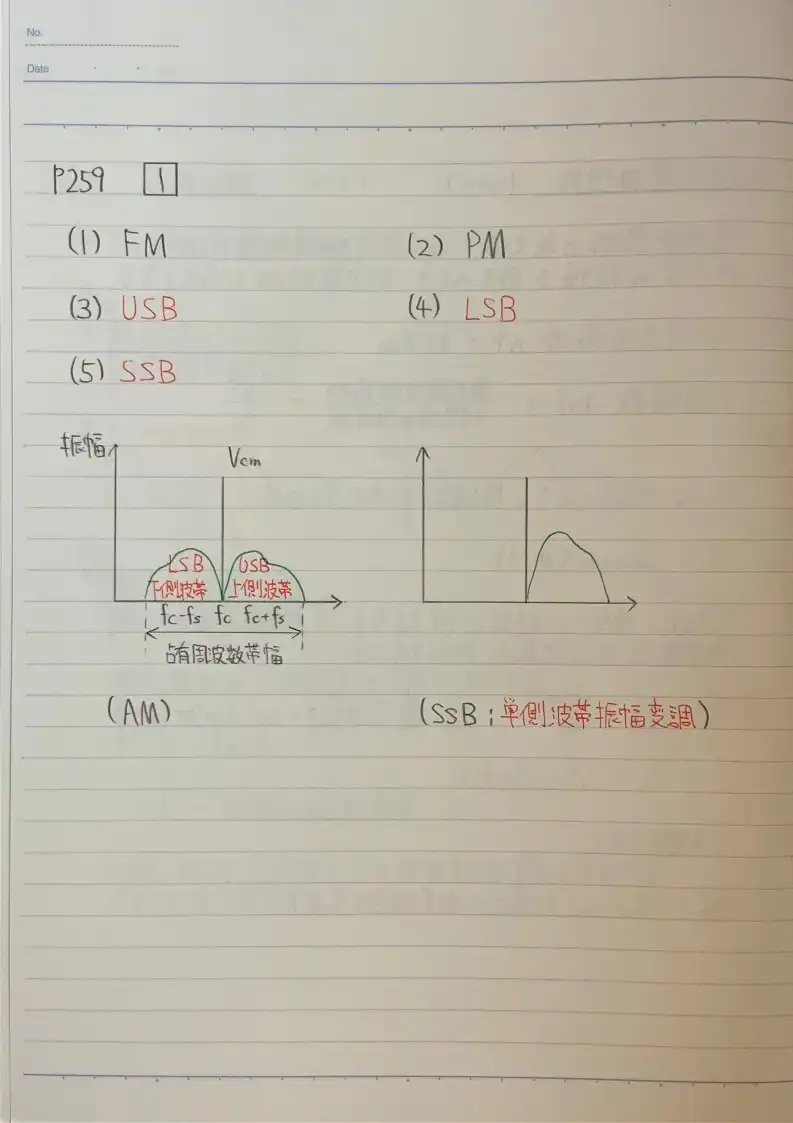 No.
Date
P259 1
(1) FM (2) PM
(3) USB (4) LSB
(5) SSB
振幅
Vcm
LSB USB
下側波帯 上側波帯
fc-fs fc fc+fs
占有周波数帯幅
(AM) (SSB;単側波帯振幅変調)